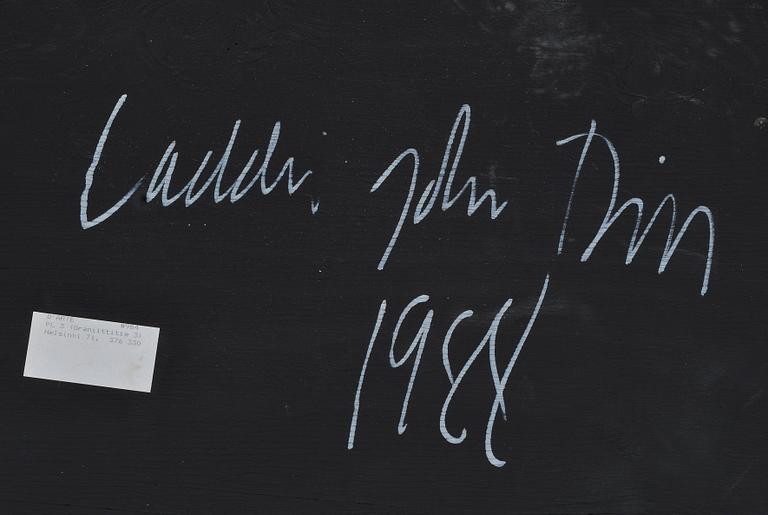 Laddie John Dill
1988
D'ARTE 8904
PL 3 (Graniittitie 3)
Helsinki 71, 376 330